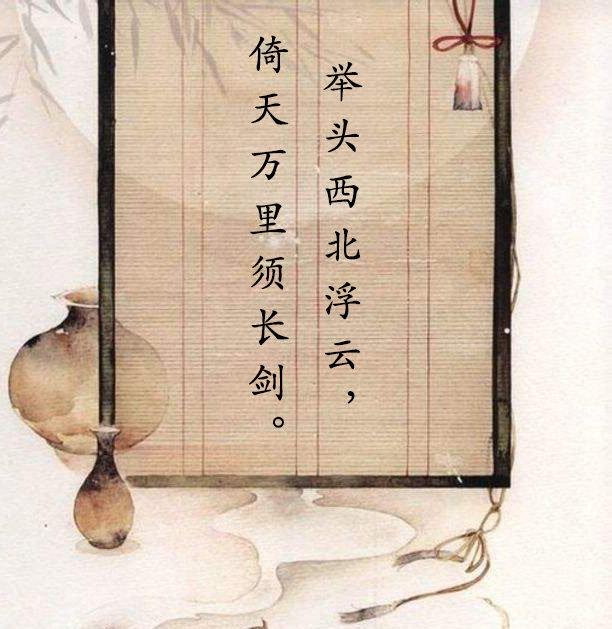 举头西北浮云，
倚天万里须长剑。